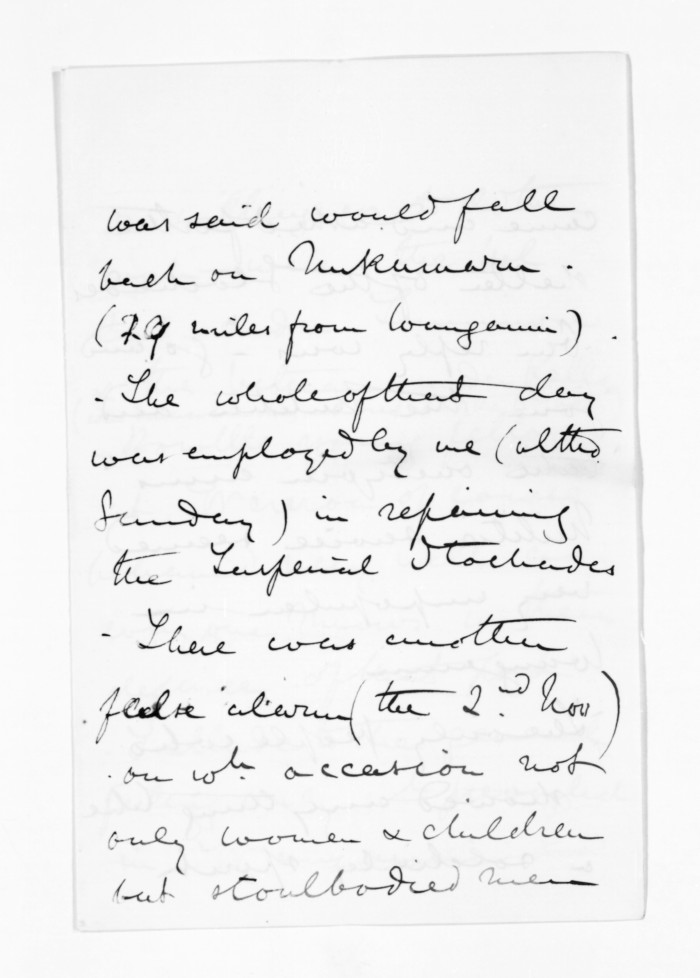 was said would fall
back on Nukumaru.
(29 miles from Wanganui).
- The whole of that day
was employed by me (altho
Sunday) in repairing
the Imperial Stockades
- There was another
false alarm (the 2nd Nov)
on wh. occasion not
only women & children
but stoutbodied men